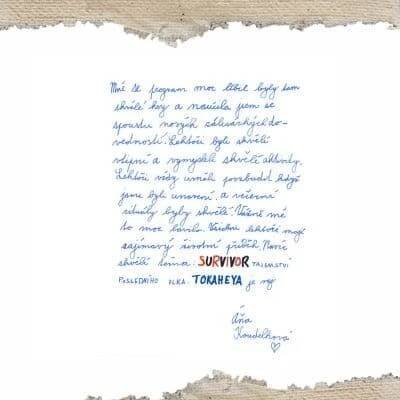 Mně se program moc líbil byly tam
skvělé hry a naučila jsem se
spoustu nových zálesáckých do-
vedností. Lektoři byli skvělí
vtipní a vymysleli skvělé aktivity.
Lektoři vždy uměli povzbudit když
jsme byli unavení a večerní
rituály byly skvělé. Vážně mě
to moc bavilo. Všichni lektoři mají
zajímavý životní příběh. Navíc
skvělé téma. SURVIVOR TAJEMSTVÍ
POSLEDNÍHO VLKA. TOKAHEYA je
Áňa
Koudelková